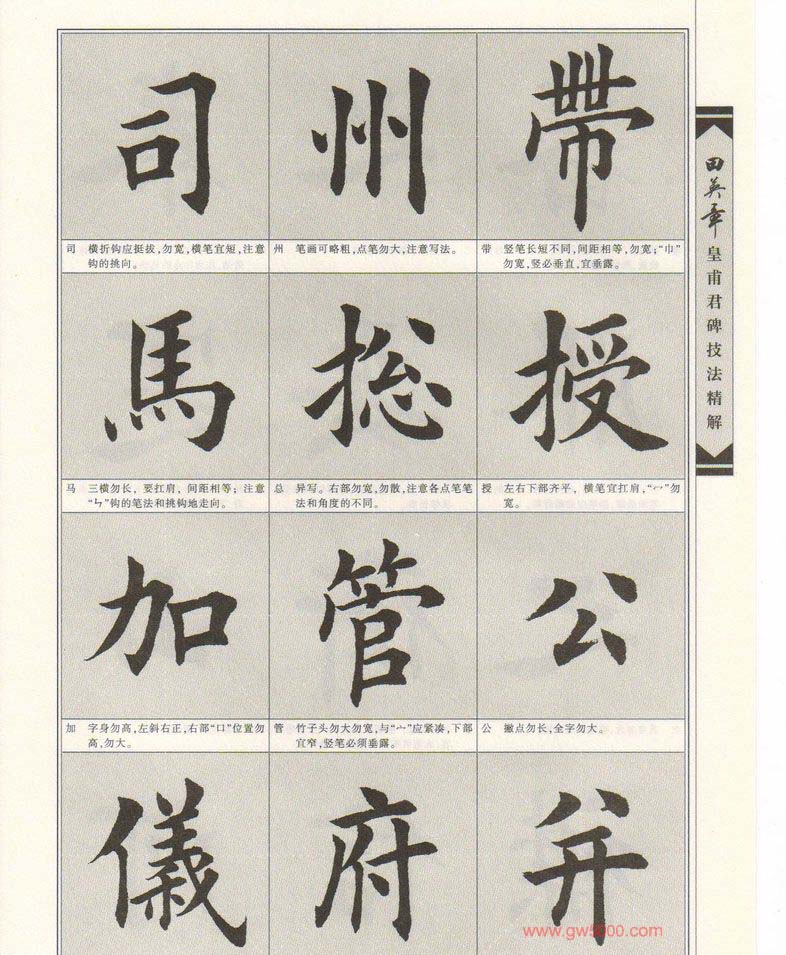 司 州 帶
司 横折钩应挺拔,勿宽,横笔宜短,注意
钩的挑向。
州 笔画可略粗,点笔勿大,注意写法。
带 竖笔长短不同,间距相等,勿宽;“巾”
勿宽,竖必垂直,宜垂露。
馬 捴 授
马 三横勿长，要扛肩，间距相等；注意
“㇉”钩的笔法和挑钩地走向。
总 异写。右部勿宽,勿散,注意各点笔笔
法和角度的不同。
授 左右下部齐平，横笔宜扛肩,“冖”勿
宽。
加 管 公
加 字身勿高,左斜右正,右部“口”位置勿
高,勿大。
管 竹子头勿大勿宽,与“宀”应紧凑,下部
宜窄,竖笔必须垂露。
公 撇点勿长,全字勿大。
儀 府 并
田英章
皇甫君碑技法精解